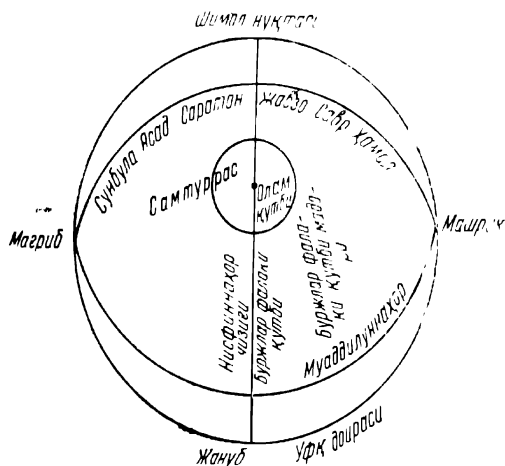 Шимал нуқтаси
Сунбула Асад Саратон
Жавзо Савр Ҳамал
Самтуррас
Олам
қутби
Мағриб
Машриқ
Нисфиннаҳор
чизиғи
Буржлар фалаки
қутби
Буржлар фала-
ки қутби мадо-
Муаддилуннаҳор
Жануб
Уфқ доираси